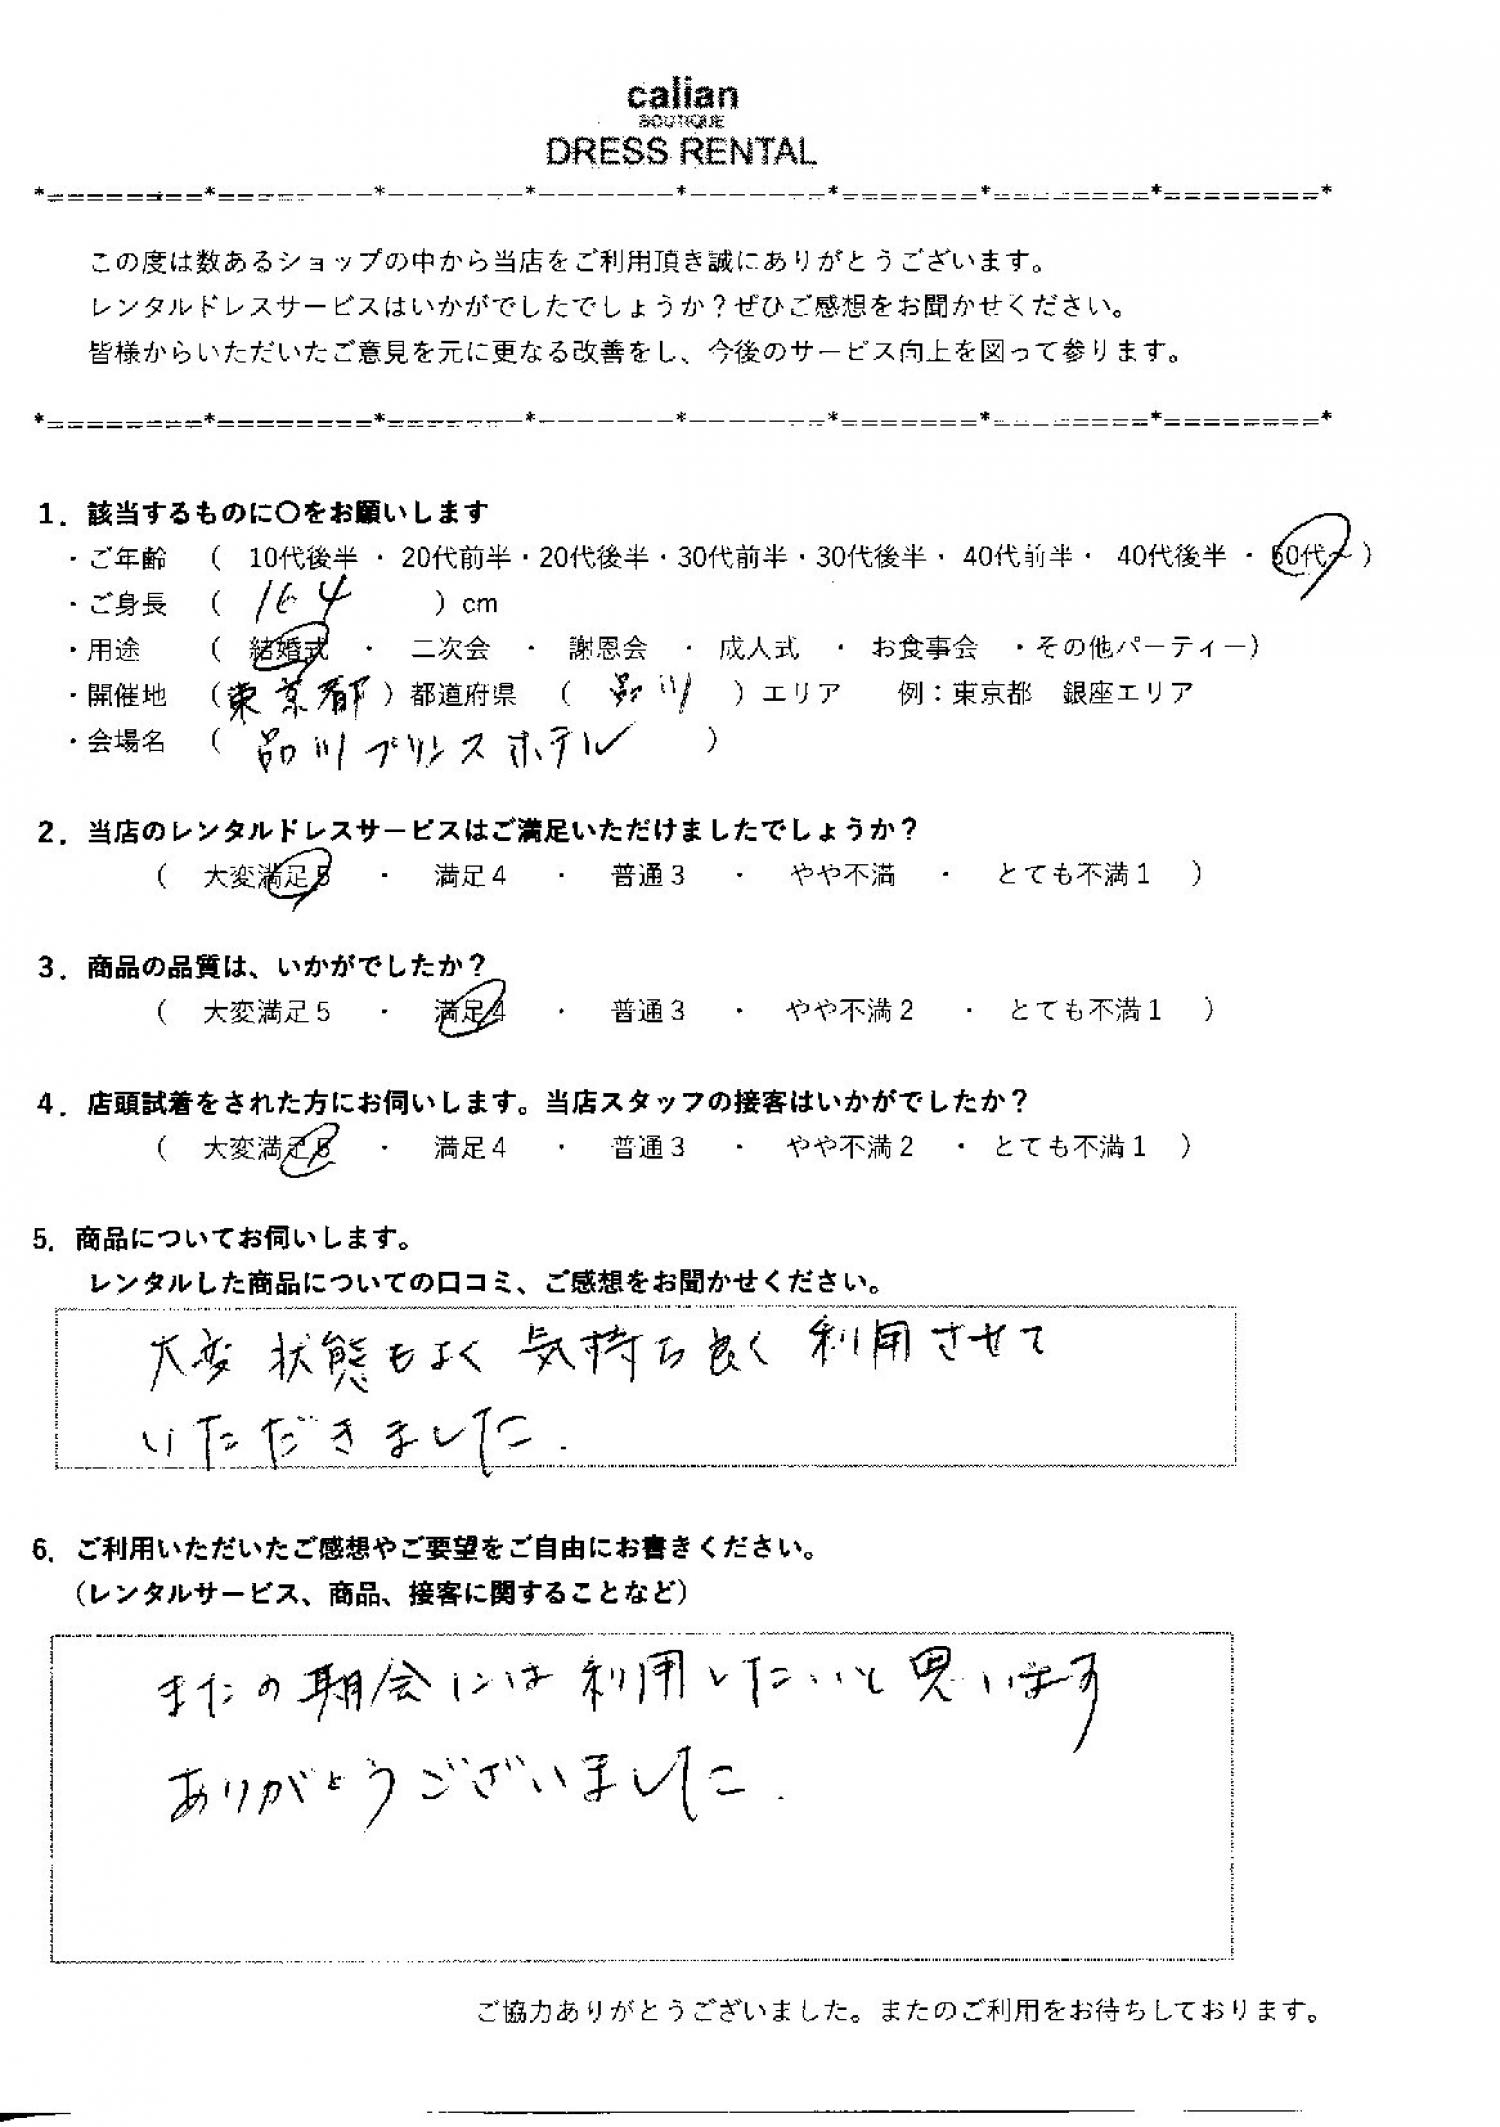 calian
BOUTIQUE
DRESS RENTAL
*========*========*-------*-------*-------*=======*========*========*
この度は数あるショップの中から当店をご利用頂き誠にありがとうございます。
レンタルドレスサービスはいかがでしたでしょうか？ぜひご感想をお聞かせください。
皆様からいただいたご意見を元に更なる改善をし、今後のサービス向上を図って参ります。
*========*========*=======*-------*-------*=======*========*========*
1．該当するものに〇をお願いします
・ご年齢 （ 10代後半 ・ 20代前半・20代後半・30代前半・30代後半・ 40代前半・ 40代後半 ・ 50代～ ）
・ご身長 （ 164 ）cm
・用途 （ 結婚式 ・ 二次会 ・ 謝恩会 ・ 成人式 ・ お食事会 ・その他パーティー）
・開催地 （東京都）都道府県 （ 品川 ）エリア 例：東京都 銀座エリア
・会場名 （ 品川プリンスホテル ）
2．当店のレンタルドレスサービスはご満足いただけましたでしょうか？
（ 大変満足5 ・ 満足4 ・ 普通3 ・ やや不満 ・ とても不満1 ）
3．商品の品質は、いかがでしたか？
（ 大変満足5 ・ 満足4 ・ 普通3 ・ やや不満2 ・ とても不満1 ）
4．店頭試着をされた方にお伺いします。当店スタッフの接客はいかがでしたか？
（ 大変満足5 ・ 満足4 ・ 普通3 ・ やや不満2 ・ とても不満1 ）
5．商品についてお伺いします。
レンタルした商品についての口コミ、ご感想をお聞かせください。
大変 状態もよく 気持ち良く 利用させて
いただきました.
6．ご利用いただいたご感想やご要望をご自由にお書きください。
（レンタルサービス、商品、接客に関することなど）
またの期会には利用したいと思います
ありがとうございました.
ご協力ありがとうございました。またのご利用をお待ちしております。